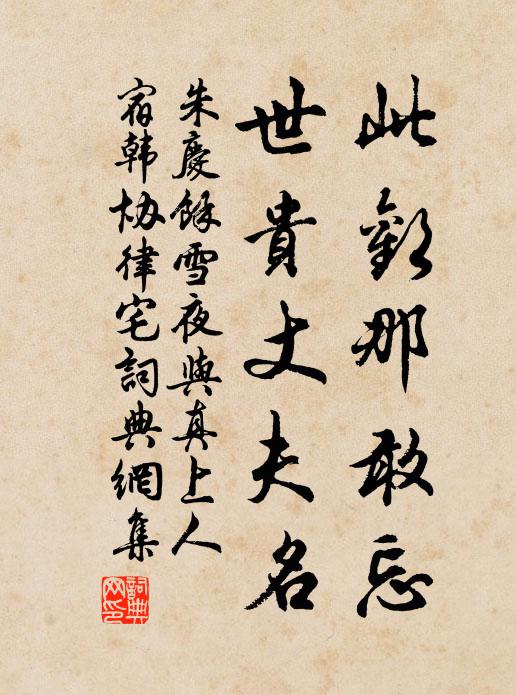 此歡那敢忘
世貴丈夫名
朱慶餘雪夜與真上人
宿韓協律宅詞典網集
詞典网印